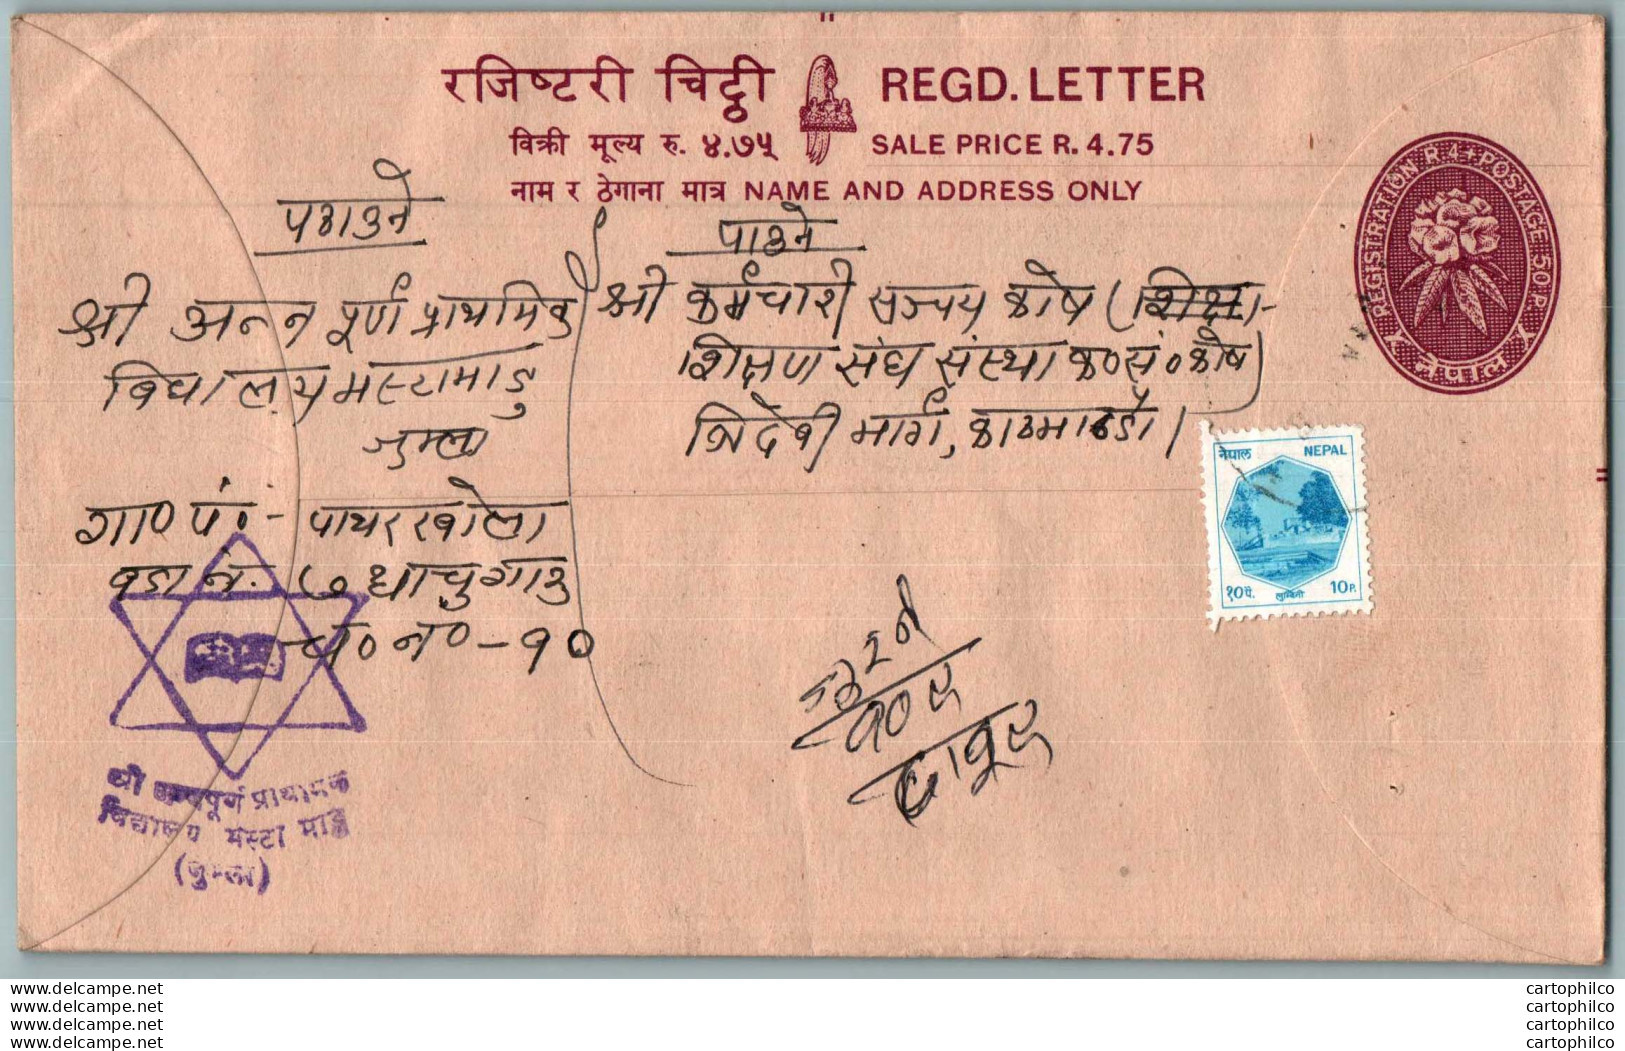 रजिष्टरी चिट्ठी REGD. LETTER
विक्री मूल्य रु. ४.७५ SALE PRICE R. 4.75
नाम र ठेगाना मात्र NAME AND ADDRESS ONLY
REGISTRATION R.4+POSTAGE 50 P.
नेपाल
पठाउने
श्री अन्नपूर्ण प्राथमिक
विद्यालय मस्टामाडु
जुम्ला
गा० पं०- पाथरखोला
वडा नं.
च० न० - १०
पाउने
श्री कर्मचारी सञ्चय कोष (शिक्षा-
शिक्षण संघ संस्था क०सं०कोष)
त्रिदेवी मार्ग, काठमाडौं।
नेपाल NEPAL
१०पै. लुम्बिनी 10P.
श्री अन्नपूर्ण प्राथमिक
विद्यालय मस्टा माडु
(जुम्ला)
www.delcampe.net cartophilco
www.delcampe.net cartophilco
www.delcampe.net cartophilco
www.delcampe.net cartophilco